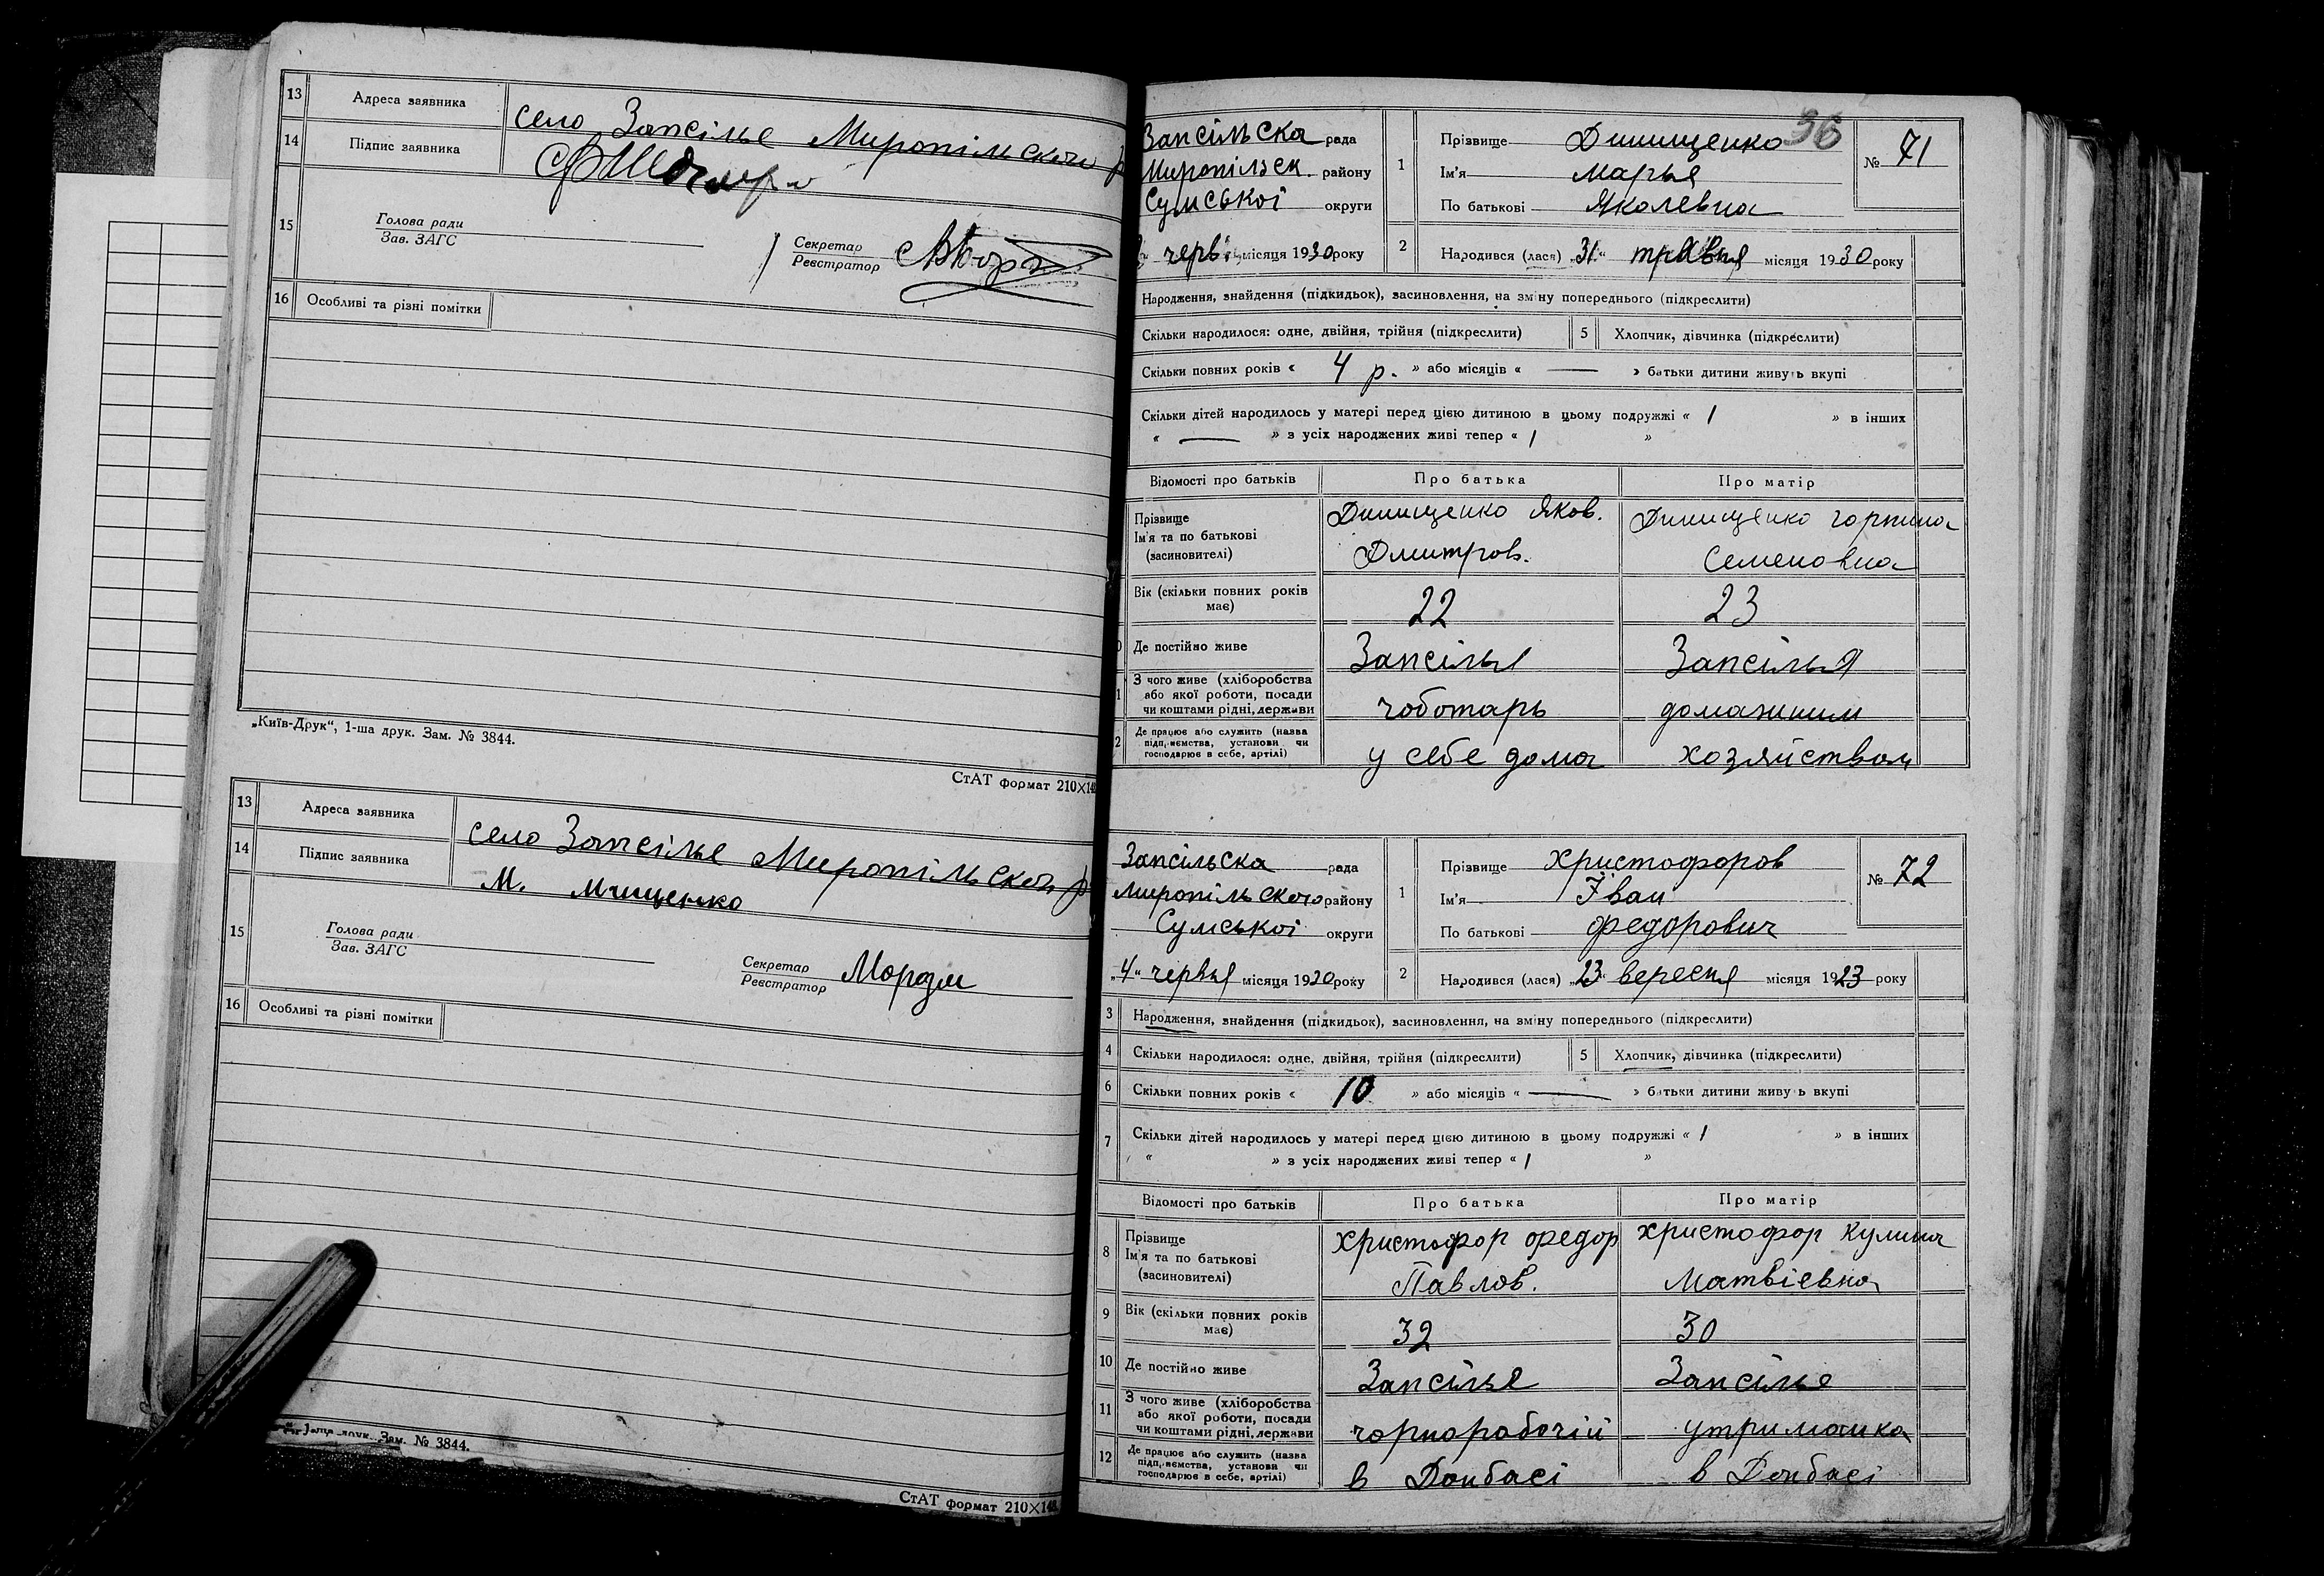 13 Адреса заявника село Запсілье Миропільского р
14 Підпис заявника
15 Голова ради
Зав. ЗАГС
Секретар
Реєстратор
16 Особливі та різні помітки
„Київ-Друк“, 1-ша друк. Зам. № 3844.
СтАТ формат 210×14
13 Адреса заявника село Запсілье Миропільского р
14 Підпис заявника М. Мищенко
15 Голова ради
Зав. ЗАГС
Секретар
Реєстратор
16 Особливі та різні помітки
друк. Зам. № 3844.
СтАТ формат 210×14
36
Запсільска рада
Миропільск. району
Сумської округи
черв місяця 1930 року
1 Прізвище Динищенко
Ім'я Марья
По батькові Яколевна
№ 71
2 Народився (лася) „31“ травня місяця 1930 року
Народження, знайдення (підкидьок), засиновлення, на зміну попереднього (підкреслити)
Скільки народилося: одне, двійня, трійня (підкреслити) 5 Хлопчик, дівчинка (підкреслити)
Скільки повних років « 4 р. » або місяців « — » батьки дитини живуть вкупі
Скільки дітей народилось у матері перед цією дитиною в цьому подружжі « 1 » в інших
« — » з усіх народжених живі тепер « 1 »
Відомості про батьків Про батька Про матір
Прізвище
Ім'я та по батькові
(засновителі)
Динищенко Яков.
Дмитров.
Динищенко горпина
Семеновна
Вік (скільки повних років має) 22 23
Де постійно живе Запсілье Запсілья
З чого живе (хліборобства
або якої роботи, посади
чи коштами рідні, держави
чоботарь домашним
Де працює або служить (назва
підприємства, установи чи
господарює в себе, артілі)
у себе дома хозяйством
Запсільска рада
Миропільского району
Сумської округи
„4“ червня місяця 1930 року
1 Прізвище Христофоров
Ім'я Іван
По батькові Федорович
№ 72
2 Народився (лася) „23“ вересня місяця 1923 року
3 Народження, знайдення (підкидьок), засиновлення, на зміну попереднього (підкреслити)
4 Скільки народилося: одне, двійня, трійня (підкреслити) 5 Хлопчик, дівчинка (підкреслити)
6 Скільки повних років « 10 » або місяців « — » батьки дитини живуть вкупі
7 Скільки дітей народилось у матері перед цією дитиною в цьому подружжі « 1 » в інших
« » з усіх народжених живі тепер « 1 »
Відомості про батьків Про батька Про матір
8 Прізвище
Ім'я та по батькові
(засиновителі)
Христофор Федор
Павлов.
Христофор Кулина
Матвіевна
9 Вік (скільки повних років має) 32 30
10 Де постійно живе Запсілье Запсілье
11 З чого живе (хліборобства
або якої роботи, посади
чи коштами рідні, держави
чорнорабочій утриманка
12 Де працює або служить (назва
підприємства, установи чи
господарює в себе, артілі)
в Донбасі в Донбасі